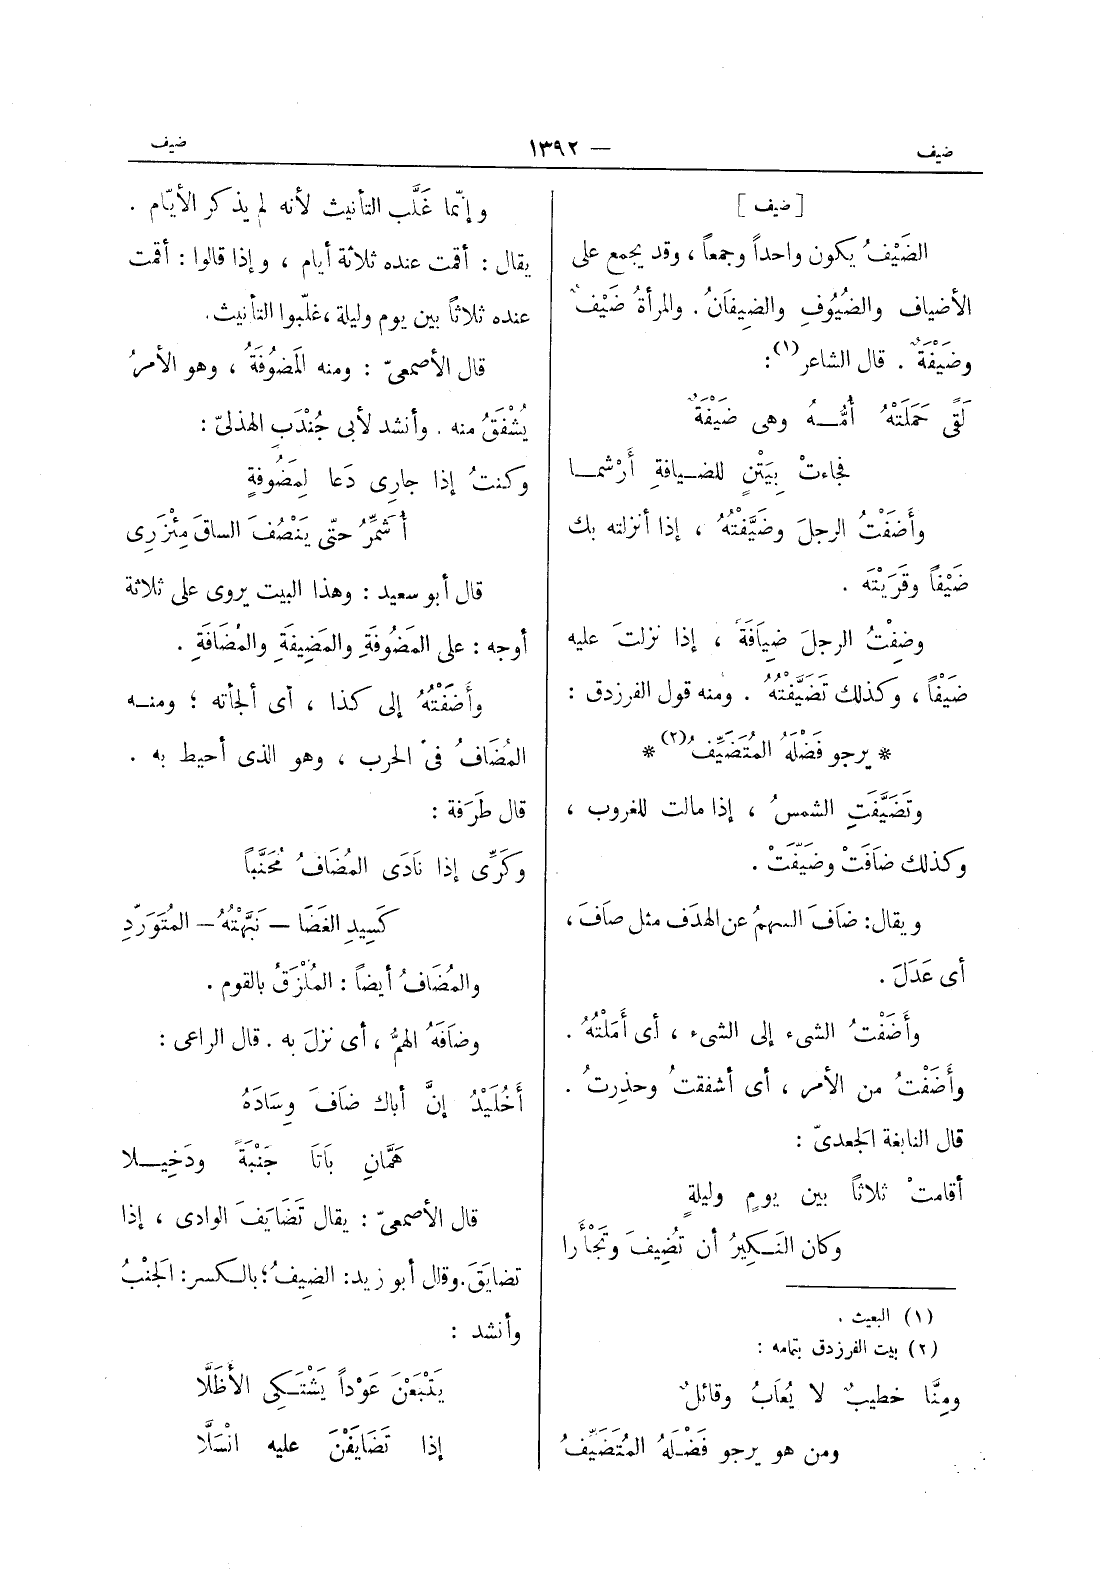 ضيف
— ١٣٩٢
ضيف
[ ضيف ]
الضَيْفُ يكون واحداً وجمعاً ، وقد يجمع على
الأضياف والضُيُوفِ والضِيفَانُ . والمرأةُ ضَيْفٌ
وضَيْفَةٌ . قال الشاعر(١) :
لَقًى حَمَلَتْهُ أُمُّـــهُ وهى ضَيْفَةٌ
فجاءتْ بِيَتْنٍ للضـيافةِ أَرْشمـا
وأَضَفْتُ الرجلَ وضَيَّفْتُهُ ، إذا أنزلته بك
ضَيْفاً وقَرَيْتَه .
وضِفْتُ الرجلَ ضِيَافَةً ، إذا نزلتَ عليه
ضَيْفاً ، وكذلك تَضَيَّفْتُهُ . ومنه قول الفرزدق :
* يرجو فَضْلَهُ المُتَضَيِّفُ(٢) *
وتَضَيَّفَتِ الشمسُ ، إذا مالت للغروب ،
وكذلك ضَافَتْ وضَيَّفَتْ .
ويقال: ضَافَ السهمُ عن الهدَف مثل صَافَ ،
أى عَدَلَ .
وأَضَفْتُ الشىء إلى الشىء ، أى أَمَلْتُهُ .
وأَضَفْتُ من الأمر ، أى أشفقتُ وحذِرتُ .
قال النابغة الجعدىّ :
أقامتْ ثلاثاً بين يومٍ وليلةٍ
وكان النَـكِيرُ أن تُضِيفَ وتَجْأَرا
(١) البعيث .
(٢) بيت الفرزدق بتمامه :
ومِنَّا خطيبٌ لا يُعَابُ وقائلٌ
ومن هو يرجو فَضْلَهُ المُتَضَيِّفُ
وإنّما غَلَّب التأنيث لأنه لم يذكر الأيّام .
يقال : أقمت عنده ثلاثة أيام ، وإذا قالوا : أقمت
عنده ثلاثاً بين يوم وليلة ، غلّبوا التأنيث.
قال الأصمعىّ : ومنه المَضُوفَةُ ، وهو الأمرُ
يُشْفَقُ منه . وأنشد لأبى جُنْدَبِ الهذلىّ :
وكنتُ إذا جارِى دَعا لِمَضُوفةٍ
أُشَمِّرُ حتّى يَنْصُفَ الساقَ مِئْزَرِى
قال أبو سعيد : وهذا البيت يروى على ثلاثة
أوجه : على المَضُوفَةِ والمَضِيفَةِ والمُضَافَةِ .
وأَضَفْتُهُ إلى كذا ، أى ألجأته ؛ ومنـه
المُضَافُ فى الحرب ، وهو الذى أحيط به .
قال طَرَفة :
وكَرِّى إذا نَادَى المُضَافُ مُحَنَّباً
كَسِيدِ الغَضَا — نَبَّهْتَهُ — المُتَوَرِّدِ
والمُضَافُ أيضاً : المُلْزَقُ بالقوم .
وضَافَهُ الهمُّ ، أى نزلَ به . قال الراعى :
أَخُلَيْدُ إنَّ أباك ضَافَ وِسَادَهُ
هَمَّانِ بَاتَا جَنْبَةً ودَخِيـلا
قال الأصمعىّ : يقال تَضَايَفَ الوادى ، إذا
تضايَقَ. وقال أبو زيد: الضِيفُ؛ بالـكسر: الجَنْبُ
وأنشد :
يَتْبَعْنَ عَوْداً يَشْتَـكِى الأَظَلَّا
إذا تَضَايَفْنَ عليه انْسَلَّا